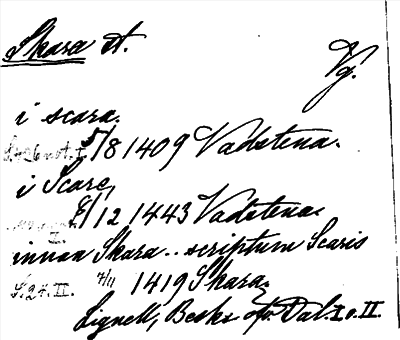 Skara st.
Vg.
i scara.
5/8 1409 Vadstena.
i Scare,
8/12 1443 Vadstena.
innan Skara .. scriptum Scaris
S. 24. II. 4/11 1419 Skara.
Lignell, Beskr. Dal. I o. II.